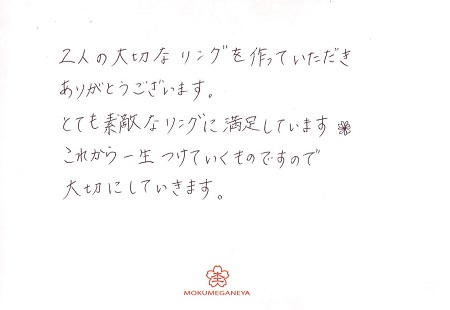 2人の大切なリングを作っていただき
ありがとうございます。
とても素敵なリングに満足しています
これから一生つけていくものですので
大切にしていきます。
MOKUMEGANEYA